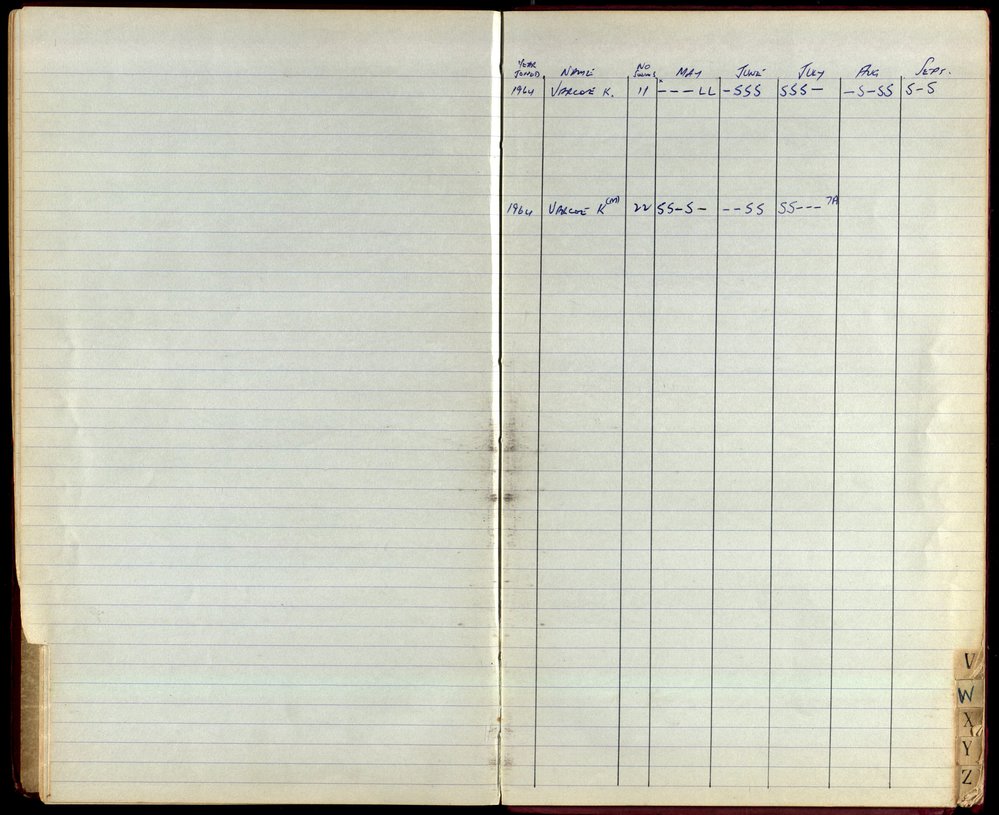 YEAR JOINED. NAME NO SWIMS MAY JUNE JULY AUG SEPT.
1964 VARCOE K. 11 - - - LL -SSS SSS - -S-SS S-S
1964 VARCOE K (M) 22 SS-S- --SS SS--- 7A
V
W
X
Y
Z